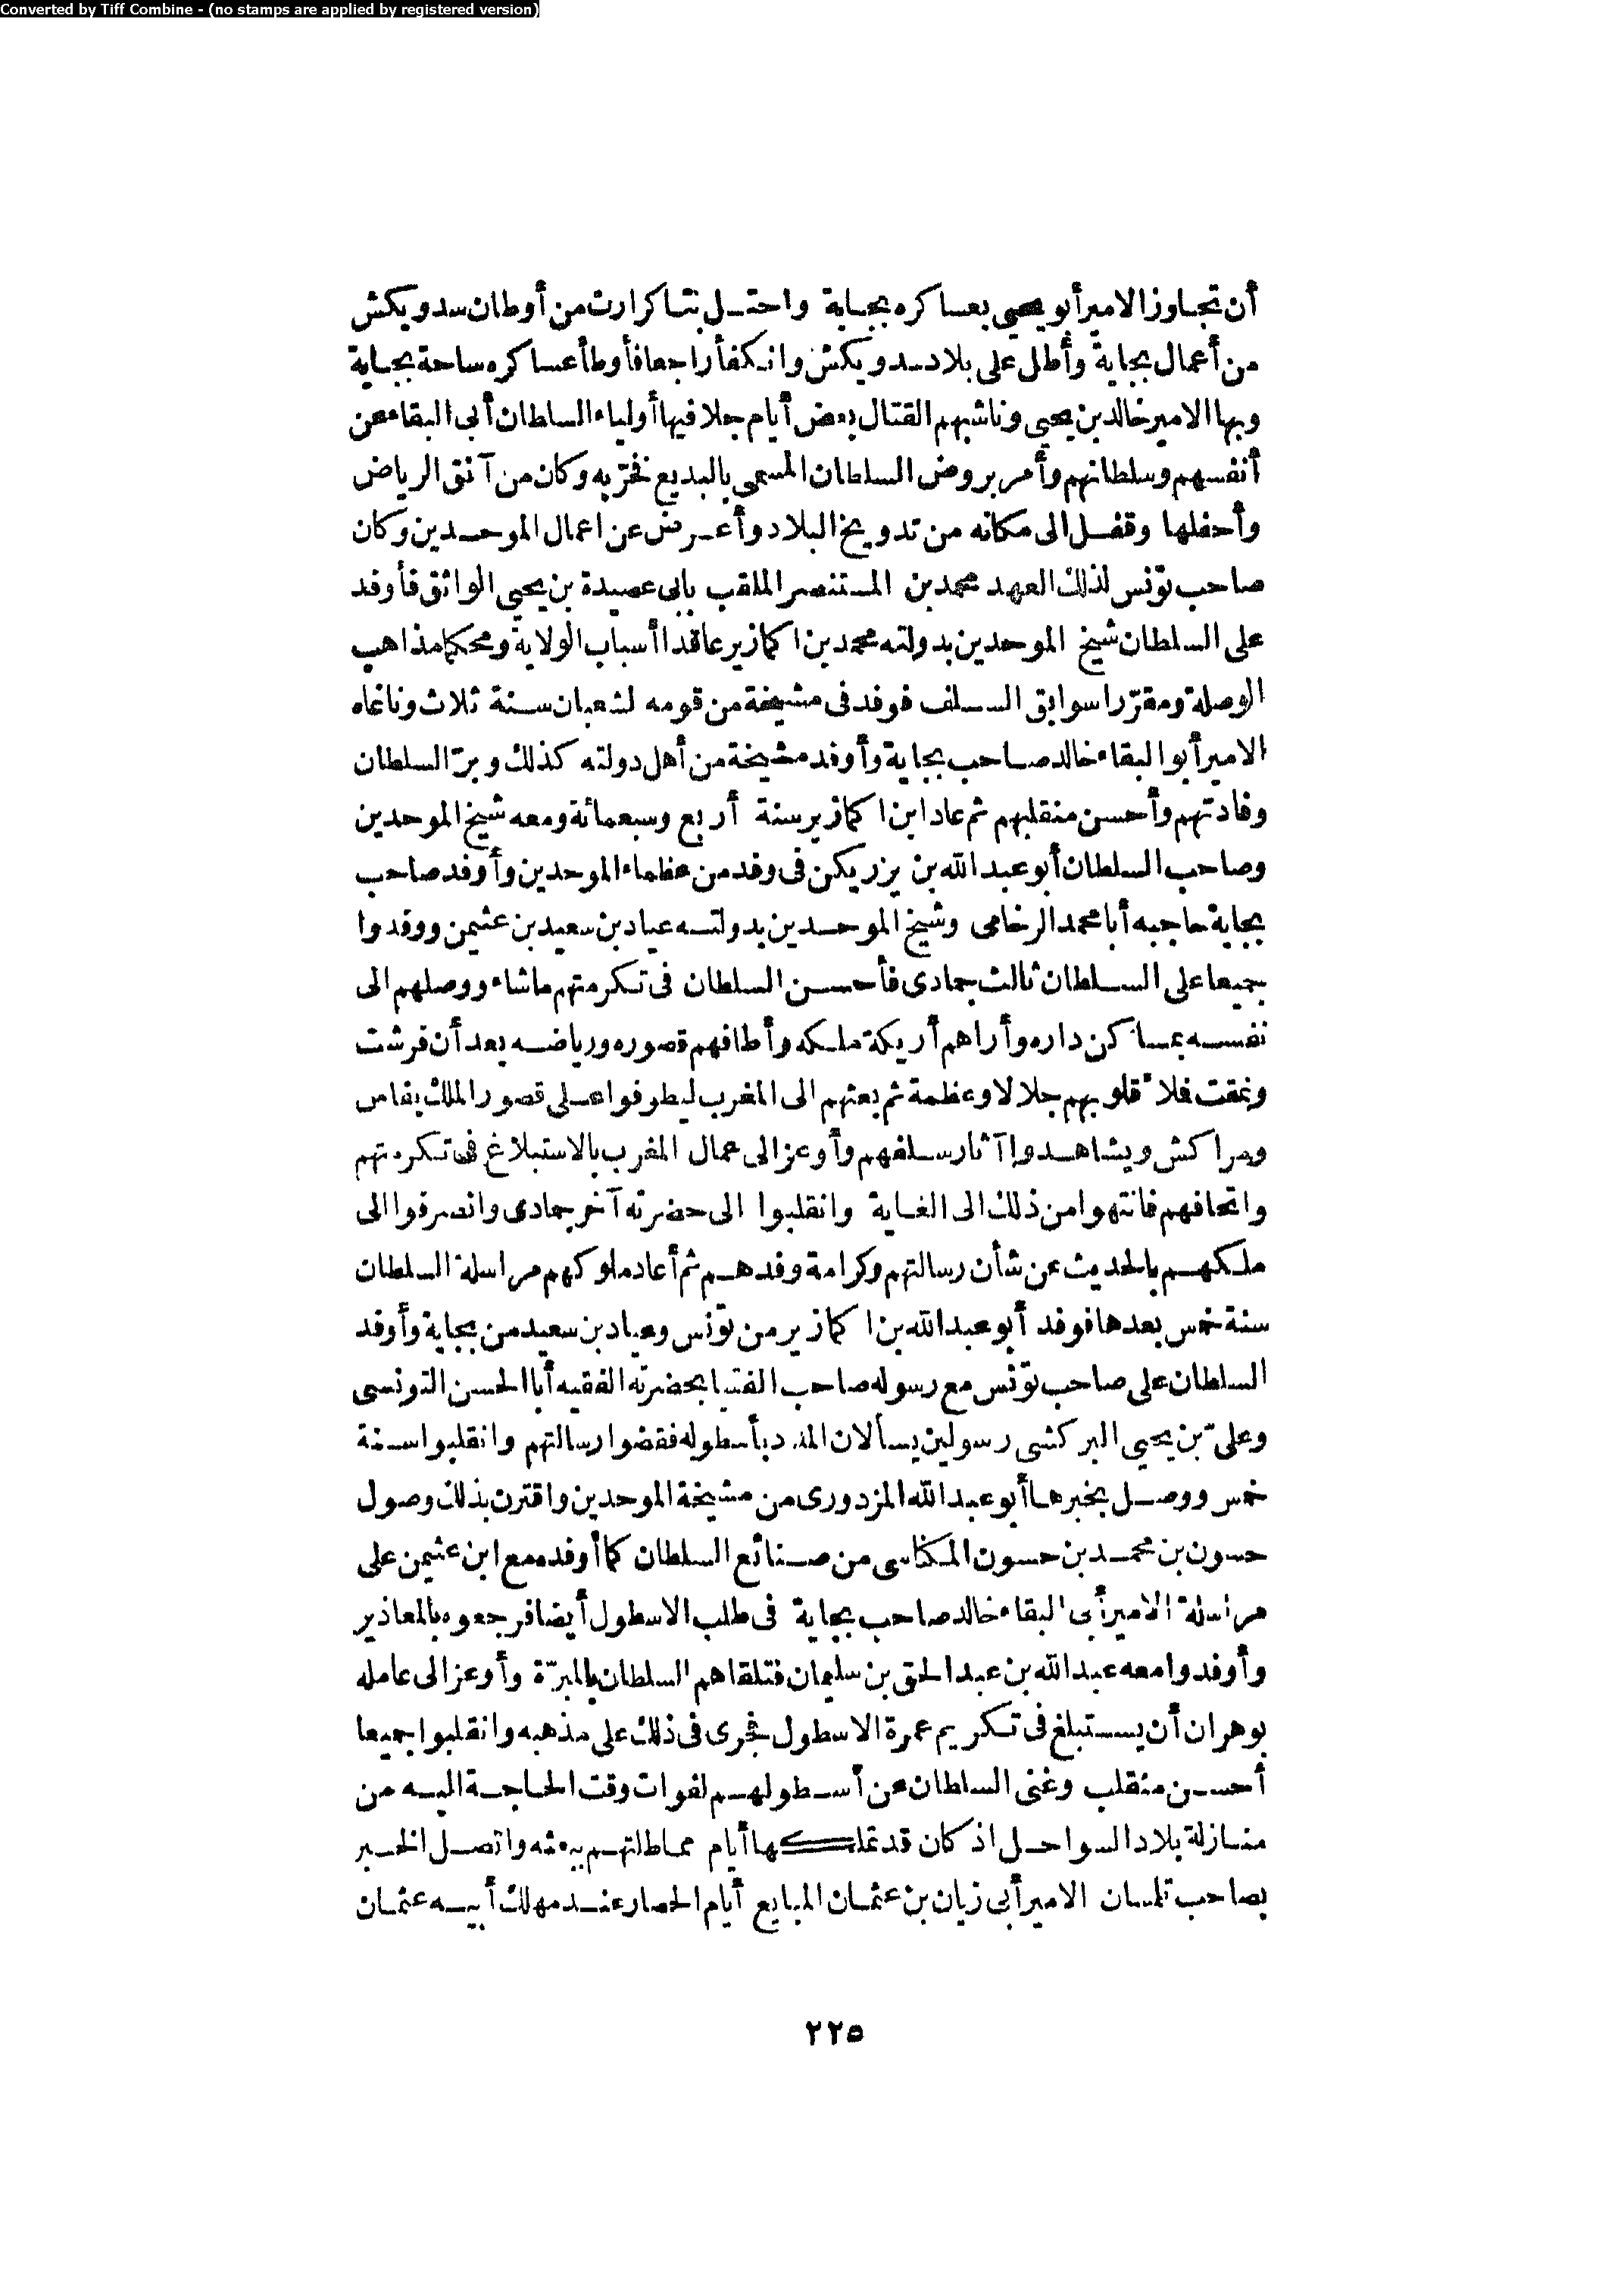 Converted by Tiff Combine - (no stamps are applied by registered version)
أن تجاوز الامير أبو يحيى بعساكره بجاية واحتل بتاكرارت من أوطان سدويكش
من أعمال بجاية وأطل على بلاد سدويكش وانكفأ راجعا فأوطأ عساكره ساحة بجاية
وبها الامير خالد بن يحيى وناشبهم القتال بعض أيام جلا فيها أولياء السلطان أبى البقاء عن
أنفسهم وسلطانهم وأمر بروض السلطان المسمى بالبديع فخرّبه وكان من آنق الرياض
وأحفلها وقفل الى مكانه من تدويخ البلاد وأعرض عن اعمال الموحدين وكان
صاحب تونس لذلك العهد محمد بن المستنصر الملقب بابى عصيدة بن يحيى الواثق فأوفد
على السلطان شيخ الموحدين بدولته محمد بن اكمازير عاقدا أسباب الولاية ومحكما مذاهب
الوصلة ومقرّرا سوابق السلف فوفد فى مشيخة من قومه لشعبان سنة ثلاث وناغاه
الامير أبو البقاء خالد صاحب بجاية وأوفد مشيخة من أهل دولته كذلك وبرّ السلطان
وفادتهم وأحسن منقلبهم ثم عاد ابن اكمازير سنة أربع وسبعمائة ومعه شيخ الموحدين
وصاحب السلطان أبو عبد الله بن يزريكن فى وفد من عظماء الموحدين وأوفد صاحب
بجاية حاجبه أبا محمد الرخامى وشيخ الموحدين بدولته عياد بن سعيد بن عثيمن ووفدوا
جميعا على السلطان ثالث جمادى فأحسن السلطان فى تكرمتهم ماشاء ووصلهم الى
نفسه بمساكن داره وأراهم أريكة ملكه وأطافهم قصوره ورياضه بعد أن فرشت
ونمقت فملأ قلوبهم جلالا وعظمة ثم بعثهم الى المغرب ليطوفوا على قصور الملك بفاس
ومراكش ويشاهدوا آثار سلفهم وأوعز الى عمال المغرب بالاستبلاغ فى تكرمتهم
واتحافهم فانتهوا من ذلك الى الغاية وانقلبوا الى حضرته آخر جمادى وانصرفوا الى
ملكهم بالحديث عن شأن رسالتهم وكرامة وفدهم ثم أعاد ملوكهم مراسلة السلطان
سنة خمس بعدها فوفد أبو عبد الله بن اكمازير من تونس وعياد بن سعيد من بجاية وأوفد
السلطان على صاحب تونس مع رسوله صاحب الفتيا بحضرته الفقيه أبا الحسن التونسى
وعلىّ بن يحيى البركشى رسولين يسألان المدد بأسطوله فقضوا رسالتهم وانقلبوا سنة
خمس ووصل بخبرها أبو عبد الله المزدورى من مشيخة الموحدين واقترن بذلك وصول
حسون بن محمد بن حسون المكناسى من صنائع السلطان كما أوفده مع ابن عثيمن على
مراسلة الامير أبى البقاء خالد صاحب بجاية فى طلب الاسطول أيضا فرجعوه بالمعاذير
وأوفدوا معه عبد الله بن عبد الحق بن سليمان فتلقاهم السلطان بالمبرّة وأوعز الى عامله
بوهران أن يستبلغ فى تكريم عمرة الاسطول فجرى فى ذلك على مذهبه وانقلبوا جميعا
أحسن منقلب وغنى السلطان عن أسطولهم لفوات وقت الحاجة اليه من
منازلة بلاد السواحل اذ كان قد تملكها أيام مماطلتهم ببعثه واتصل الخبر
بصاحب تلمسان الامير أبى زيان بن عثمان المبايع أيام الحصار عند مهلك أبيه عثمان
٢٢٥